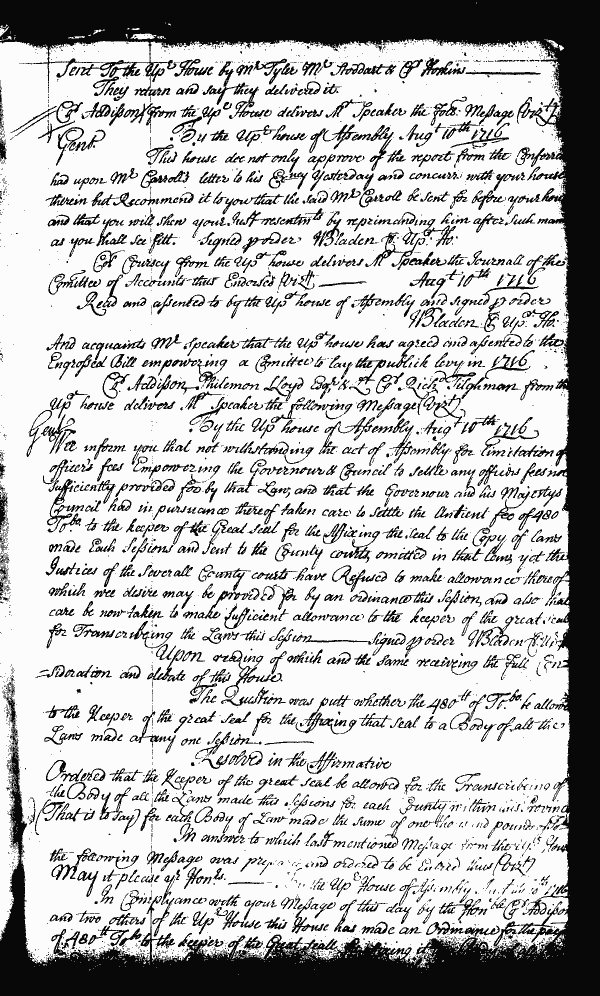 Sent To the Upr House by Mr Tyler Mr Stoddart & Cor Hopkins
They return and say they delivered it.
Cor Addison from the Upr House delivers Mr Speaker the foll: Message (Vizt)
Gent. By the Upr house of Assembly Augt 10th 1716
This house doe not only approve of the report from the Conferr
had upon Mr Carroll's letter to his Exncy Yesterday and concurr with your house
therein but Recommend it to you that the said Mr Carroll be sent for before your hou
and that you will shew your Just resentmts by reprimanding him after such man
as you shall see fitt. Signed p order WBladen Cl Upr Ho:
Cor Coursey from the Upr house delivers Mr Speaker the Journall of the
Comittee of Accounts thus Endorsed (Vizt) Augt 10th 1716
Read and assented to by the Upr house of Assembly and signed p order
WBladen Cl Upr Ho:
And acquaints Mr Speaker that the Upr house has agreed and assented to the
Engrossed Bill empowering a Comittee to lay the publick levy in 1716
Cor Addison, Philemon Lloyd Esqr & Lt Cor Richd Tilghman from th
Upr house delivers Mr Speaker the following Message (Vizt)
Gent By the Upr house of Assembly Augt 10th 1716
Wee inform you that not withstanding the act of Assembly for limitation of
officers fees Empowering the Governour & Council to settle any officers fees not
sufficiently provided for by that Law, and that the Governour and his Majestys
Council had in pursuance thereof taken care to settle the Antient fee of 480
Tobo to the keeper of the Great seal for the Affixing the seal to the Copy of Laws
made Each Sessions and sent to the County courts omitted in that Law, yet the
Justices of the Severall County courts have Refused to make allowance thereof
which wee desire may be provided for by an ordinance this Session, and also that
care be now taken to make sufficient allowance to the keeper of the great seal
for Transcribeing the Laws this Session Signed p order WBladen Cl Upr
Upon reading of which and the same receiveing the full Con=
=sideration and debate of this House
The Question was putt whether the 480tt of Tobo be allowd
to the Keeper of the great seal for the Affixing that seal to a Body of all the
Laws made at any one session.
Resolved in the Affirmative
Ordered that the Keeper of the great seal be allowed for the Transcribeing of
the Body of all the Laws made this Sessions for each County within this Provinc
(That is to say) for each Body of Law made the sume of one thousand pounds of To
In answer to which last mentioned Message from the Upr House
the following Message was prepared and ordered to be Entred thus (Vizt)
May it please yr Honrs. the Upr House of Assembly 10th 1716
In Compliance with your Message of this day by the Honble Cor Addison
and two others of the Upr House this House has made an Ordinance for the pay
of 480tt Tobo to the keeper of the Great seall for